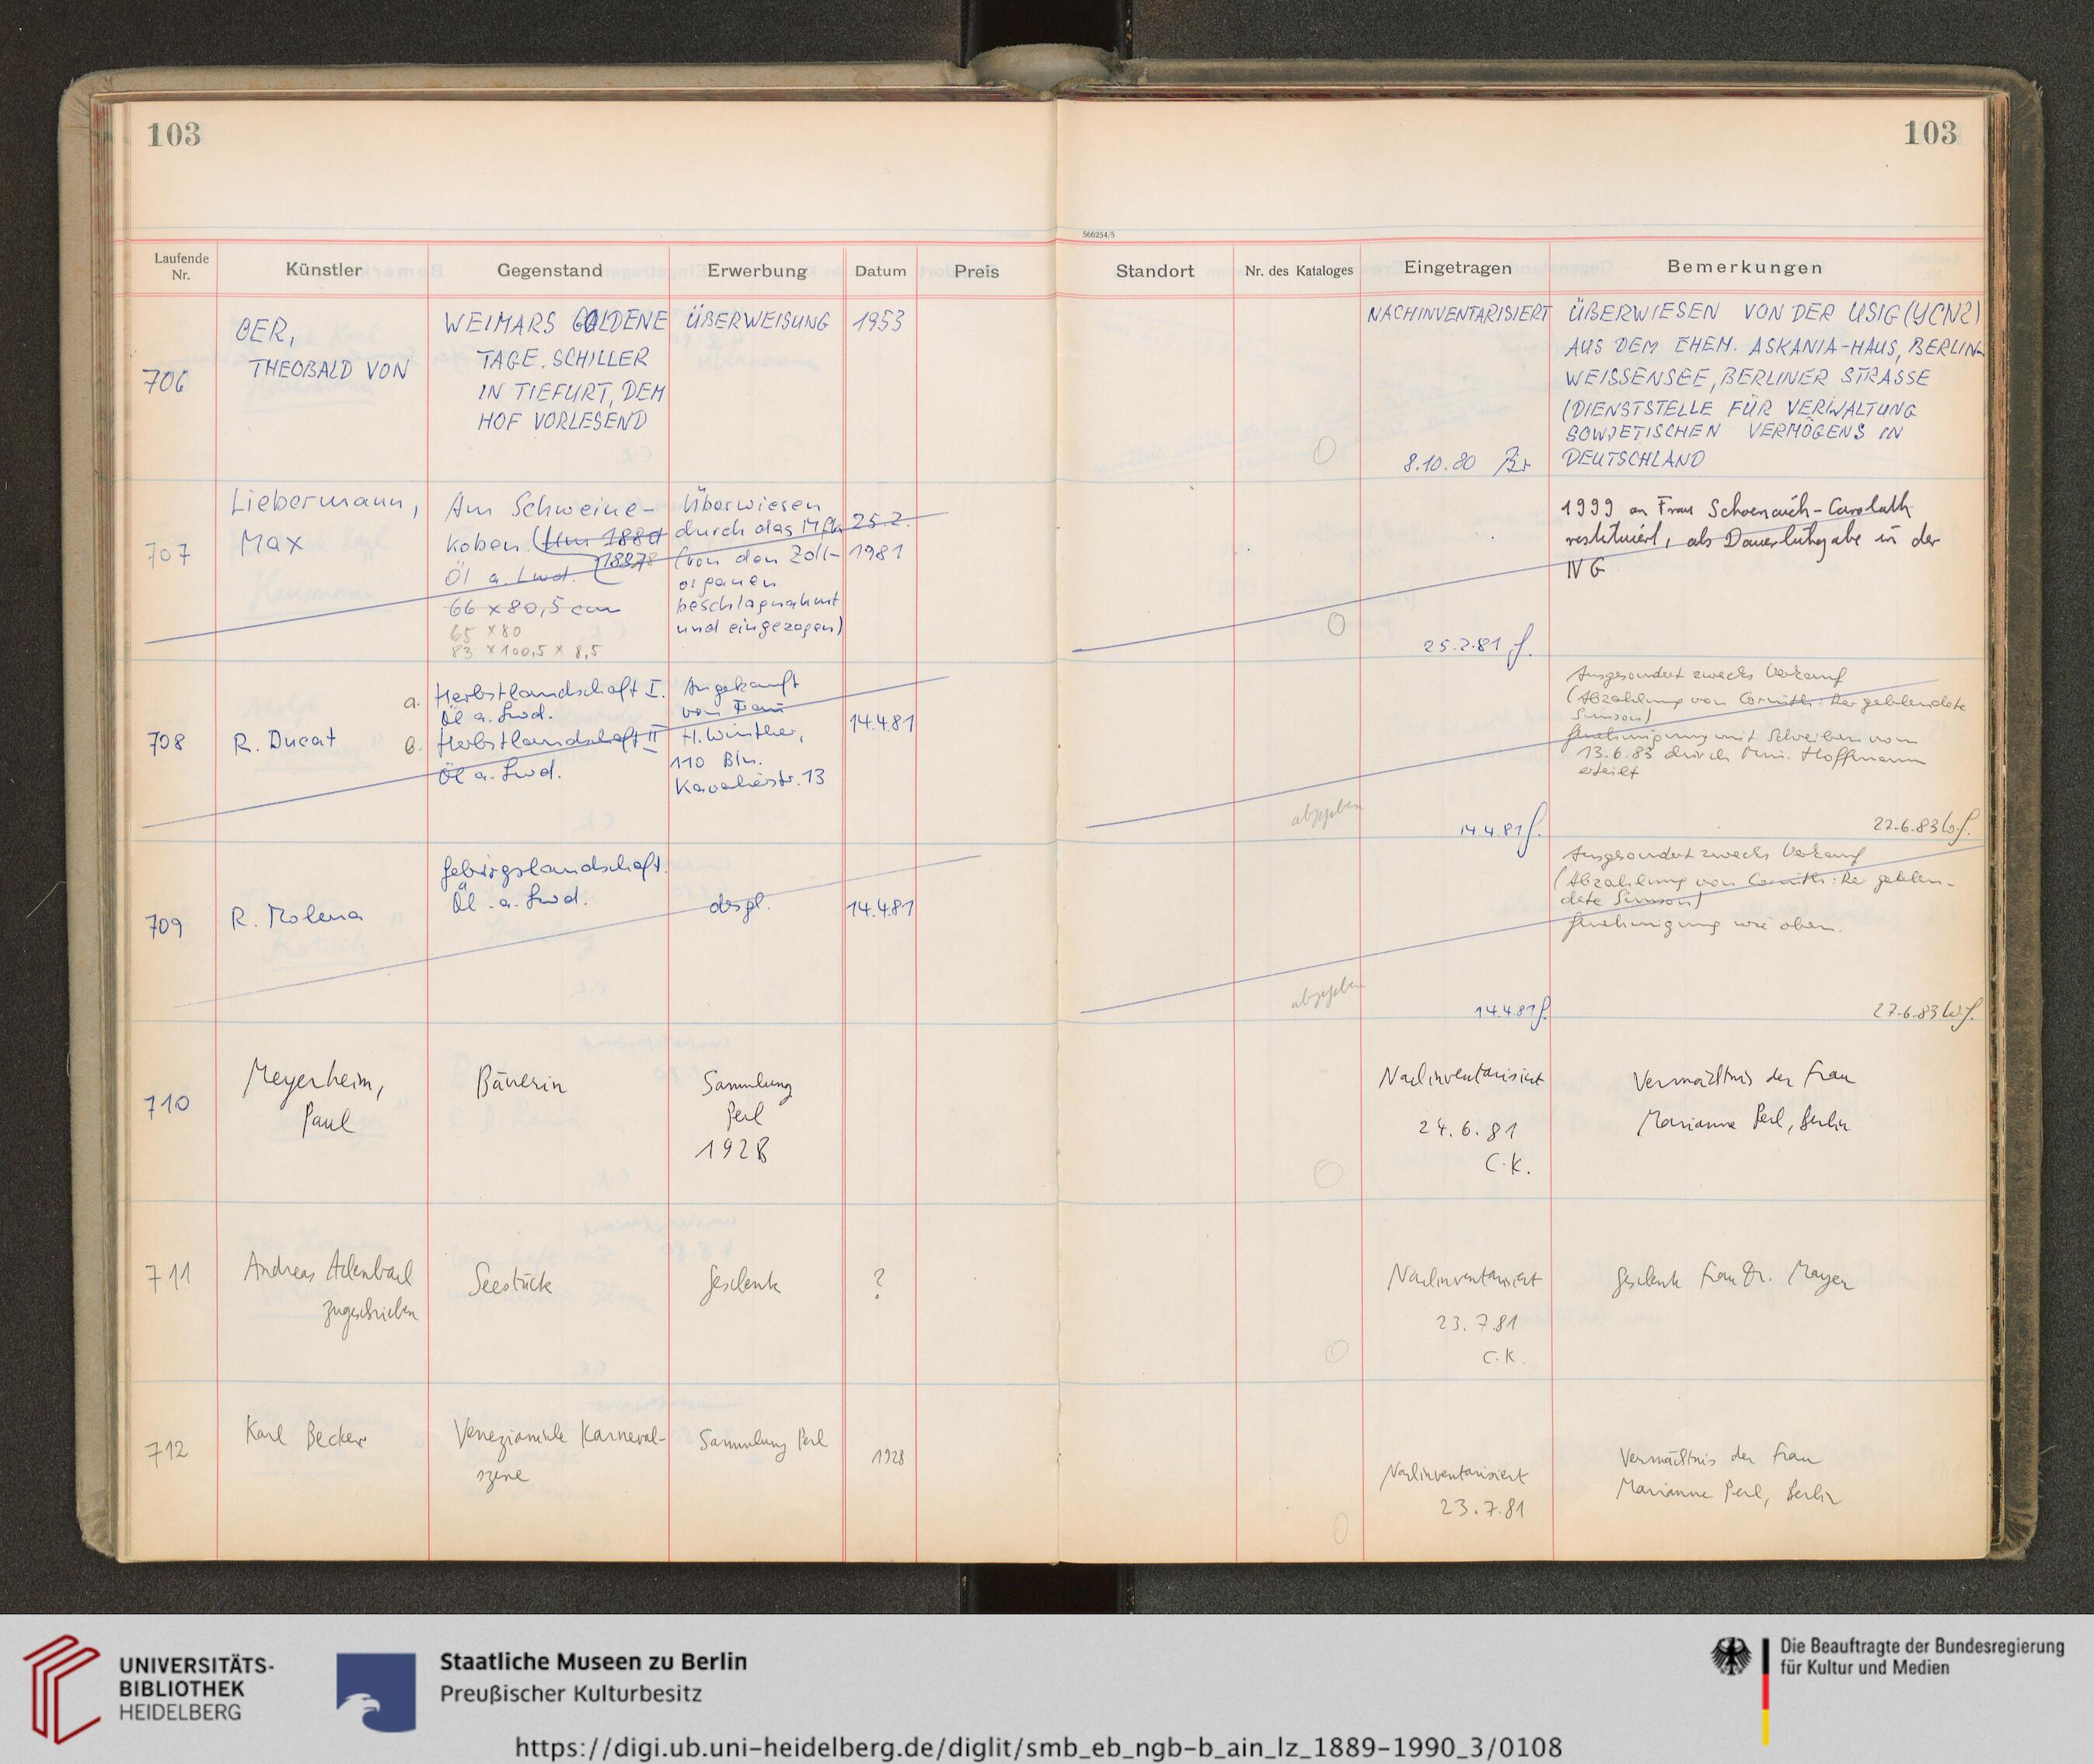 103
103
566254/5
Laufende Nr.
Künstler
Gegenstand
Erwerbung
Datum
Preis
Standort
Nr. des Kataloges
Eingetragen
Bemerkungen
706
OER,
THEOBALD VON
WEIMARS GOLDENE
TAGE. SCHILLER
IN TIEFURT, DEM
HOF VORLESEND
ÜBERWEISUNG
1953
NACHINVENTARISIERT
8.10.80
ÜBERWIESEN VON DER USIG (YCNZ)
AUS DEM EHEM. ASKANIA-HAUS, BERLIN-
WEISSENSEE, BERLINER STRASSE
(DIENSTSTELLE FÜR VERWALTUNG
SOWJETISCHEN VERMÖGENS IN
DEUTSCHLAND
707
Liebermann,
Max
Am Schweine-
koben.
Öl a. Lwd.
66 x 80,5 cm
65 x 80
83 x 100,5 x 8,5
Überwiesen
durch das MfK
(von den Zoll-
organen
beschlagnahmt
und eingezogen)
25.2.
1981
25.2.81 f.
1999 an Frau Schoenaich-Carolath
restituiert, als Dauerleihgabe in der
NG
708
R. Ducat
a. Herbstlandschaft I.
Öl a. Lwd.
b. Herbstlandschaft II
Öl a. Lwd.
Angekauft
von Frau
H. Winther,
110 Bln.
Kavalierstr. 13
14.4.81
abgegeben
14.4.81 f.
Ausgesondert zwecks Verkauf
(Abzahlung von Corinth: Der geblendete
Simson)
Genehmigung mit Schreiben vom
13.6.83 durch Min. Hoffmann
erteilt
22.6.83 W.f.
709
R. Molena
Gebirgslandschaft.
Öl a. Lwd.
desgl.
14.4.81
abgegeben
14.4.81 f.
Ausgesondert zwecks Verkauf
(Abzahlung von Corinth: Der geblen-
dete Simson)
Genehmigung wie oben.
27.6.83 W.f.
710
Meyerheim,
Paul
Bäuerin
Sammlung
Perl
1928
Nachinventarisiert
24.6.81
C.K.
Vermächtnis der Frau
Marianne Perl, Berlin
711
Andreas Achenbach
zugeschrieben
Seestück
Geschenk
?
Nachinventarisiert
23.7.81
C.K.
Geschenk Frau Dr. Mayer
712
Karl Becker
Venezianische Karneval-
szene
Sammlung Perl
1928
Nachinventarisiert
23.7.81
Vermächtnis der Frau
Marianne Perl, Berlin
UNIVERSITÄTS-
BIBLIOTHEK
HEIDELBERG
Staatliche Museen zu Berlin
Preußischer Kulturbesitz
Die Beauftragte der Bundesregierung
für Kultur und Medien
https://digi.ub.uni-heidelberg.de/diglit/smb_eb_ngb-b_ain_lz_1889-1990_3/0108